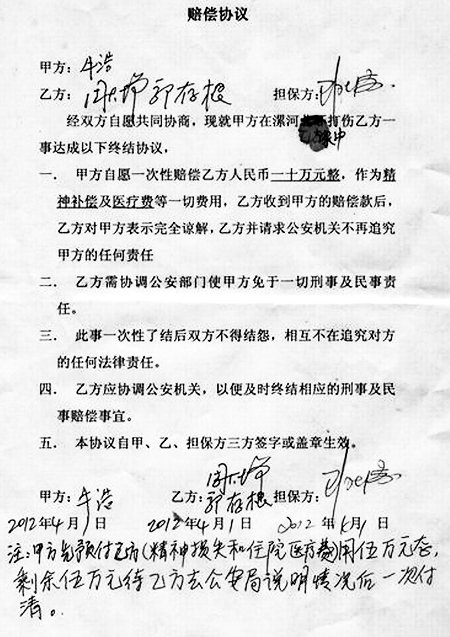 赔偿协议
甲方：牛浩
乙方：郭存根 担保方：
经双方自愿共同协商，现就甲方在漯河打伤乙方一
事达成以下终结协议，
一． 甲方自愿一次性赔偿乙方人民币一十万元整，作为精
神补偿及医疗费等一切费用，乙方收到甲方的赔偿款后，
乙方对甲方表示完全谅解，乙方并请求公安机关不再追究
甲方的任何责任
二． 乙方需协调公安部门使甲方免于一切刑事及民事责
任。
三． 此事一次性了结后双方不得结怨，相互不在追究对方
的任何法律责任。
四． 乙方应协调公安机关，以便及时终结相应的刑事及民
事赔偿事宜。
五． 本协议自甲、乙、担保方三方签字或盖章生效。
甲方：牛浩 乙方：郭存根 担保方：
2012年4月1日 2012年4月1日 2012年 月1日
注：甲方先预付乙方（精神损失和住院医疗费）用伍万元,
剩余伍万元待乙方去公安局说明情况后一次付
清。